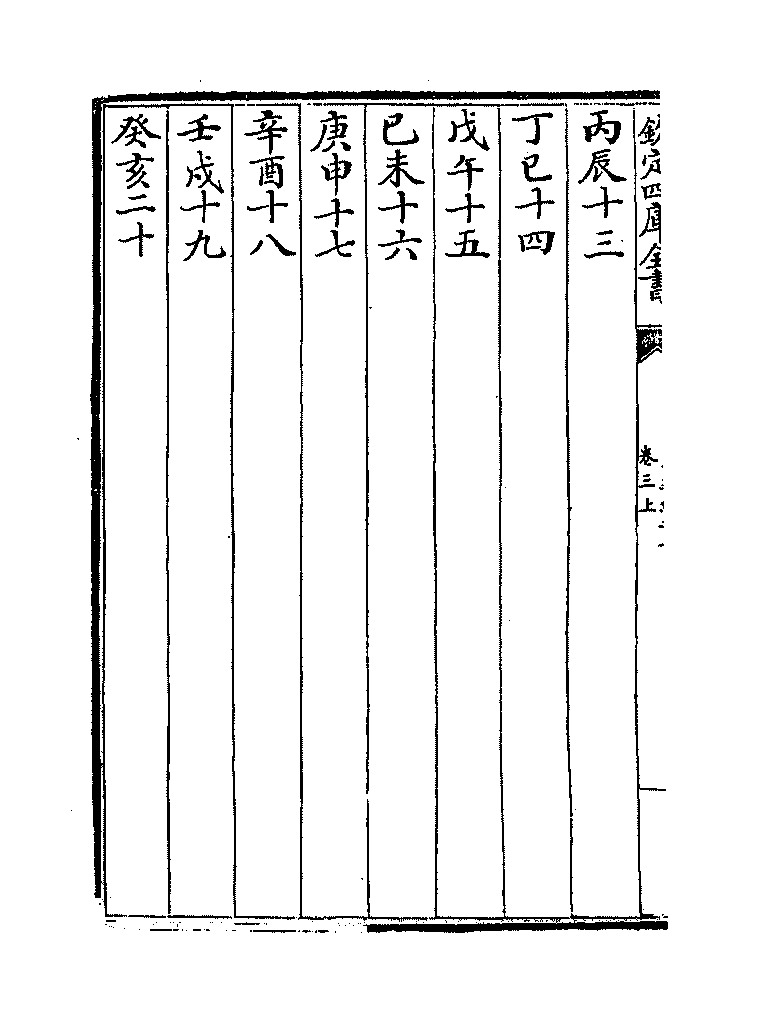 欽定四庫全書
卷三上
丙辰十三
丁巳十四
戊午十五
已未十六
庚申十七
辛酉十八
壬戌十九
癸亥二十